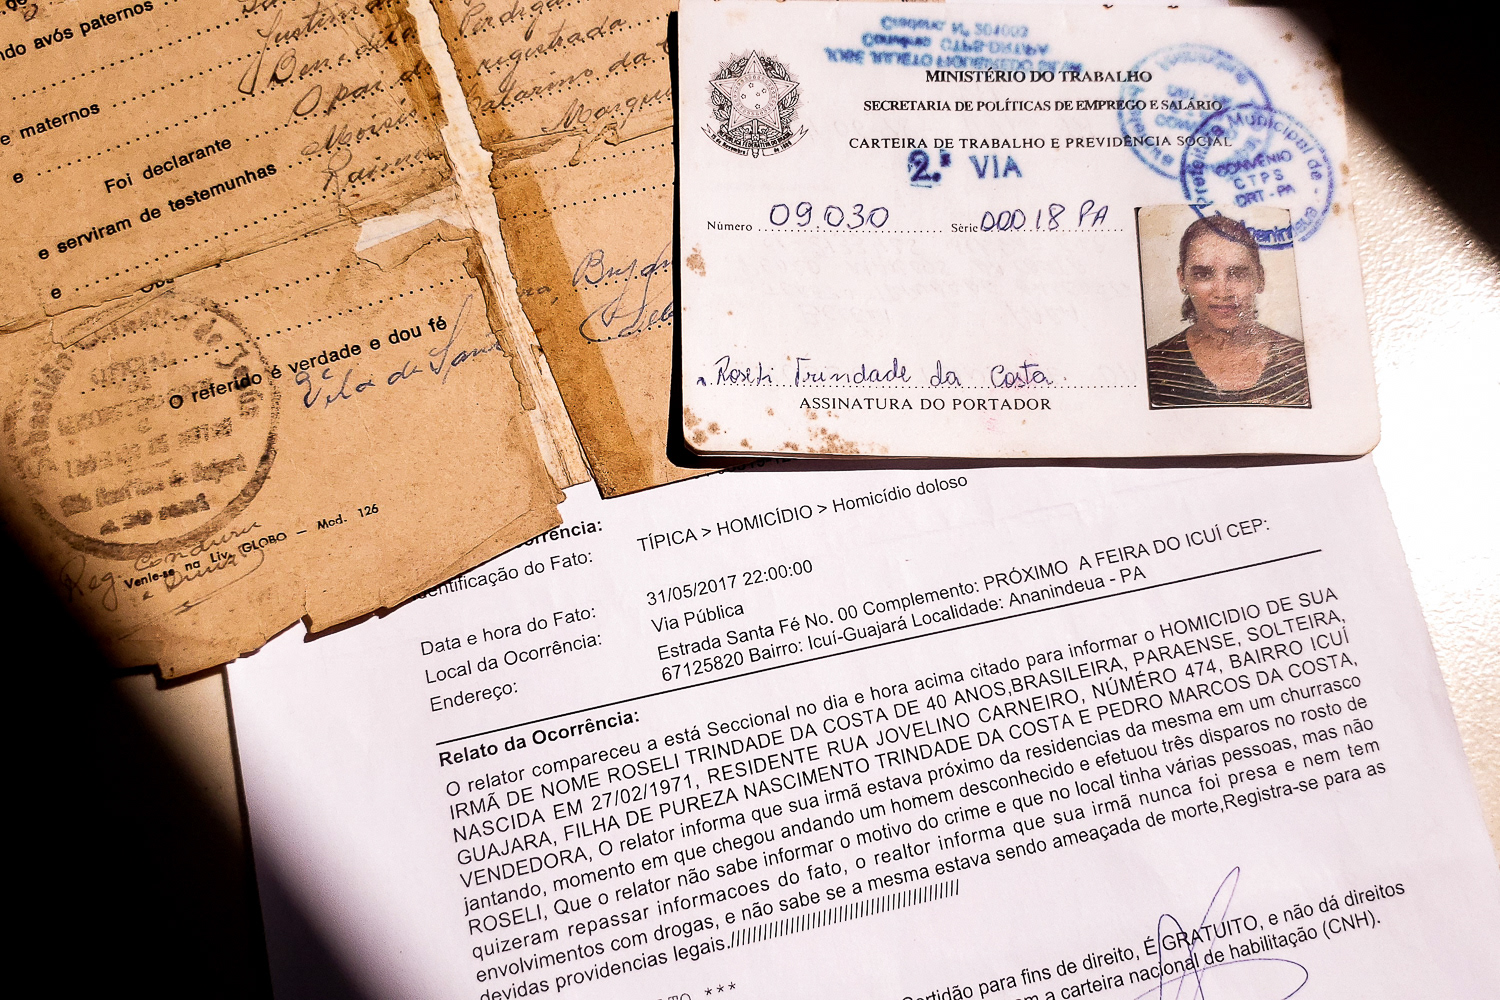 ndo avós paternos
Justim
Benedito Perdigã
e maternos
O pai da registrada
e
Foi declarante
Moisés Catarino da
Marqu
e serviram de testemunhas
e
O referido é verdade e dou fé
Vila de Sant
GLOBO — Mod. 126
Vende-se na Liv.
MINISTÉRIO DO TRABALHO
SECRETARIA DE POLÍTICAS DE EMPREGO E SALÁRIO
CARTEIRA DE TRABALHO E PREVIDÊNCIA SOCIAL
2.ª VIA
Prefeitura Municipal de - Ananindeua
CONVÊNIO
CTPS
DRT-PA
JOSÉ JULIETO FIGUEIREDO SILVA
Convênio CTPS-DRT/PA
Cradenc. Nº 201003
Número 09.030 Série 00018 PA
Roseli Trindade da Costa
ASSINATURA DO PORTADOR
orrência: TÍPICA > HOMICÍDIO > Homicídio doloso
entificação do Fato:
Data e hora do Fato: 31/05/2017 22:00:00
Local da Ocorrência: Via Pública
Endereço: Estrada Santa Fé No. 00 Complemento: PRÓXIMO A FEIRA DO ICUÍ CEP:
67125820 Bairro: Icuí-Guajará Localidade: Ananindeua - PA
Relato da Ocorrência:
O relator compareceu a está Seccional no dia e hora acima citado para informar o HOMICIDIO DE SUA
IRMÃ DE NOME ROSELI TRINDADE DA COSTA DE 40 ANOS,BRASILEIRA, PARAENSE, SOLTEIRA,
NASCIDA EM 27/02/1971, RESIDENTE RUA JOVELINO CARNEIRO, NÚMERO 474, BAIRRO ICUÍ
GUAJARA, FILHA DE PUREZA NASCIMENTO TRINDADE DA COSTA E PEDRO MARCOS DA COSTA,
VENDEDORA, O relator informa que sua irmã estava próximo da residencias da mesma em um churrasco
jantando, momento em que chegou andando um homem desconhecido e efetuou três disparos no rosto de
ROSELI, Que o relator não sabe informar o motivo do crime e que no local tinha várias pessoas, mas não
quizeram repassar informacoes do fato, o realtor informa que sua irmã nunca foi presa e nem tem
envolvimentos com drogas, e não sabe se a mesma estava sendo ameaçada de morte,Registra-se para as
devidas providencias legais.////////////////////////////////////////
TO ***
Certidão para fins de direito, É GRATUITO, e não dá direitos
m a carteira nacional de habilitação (CNH).